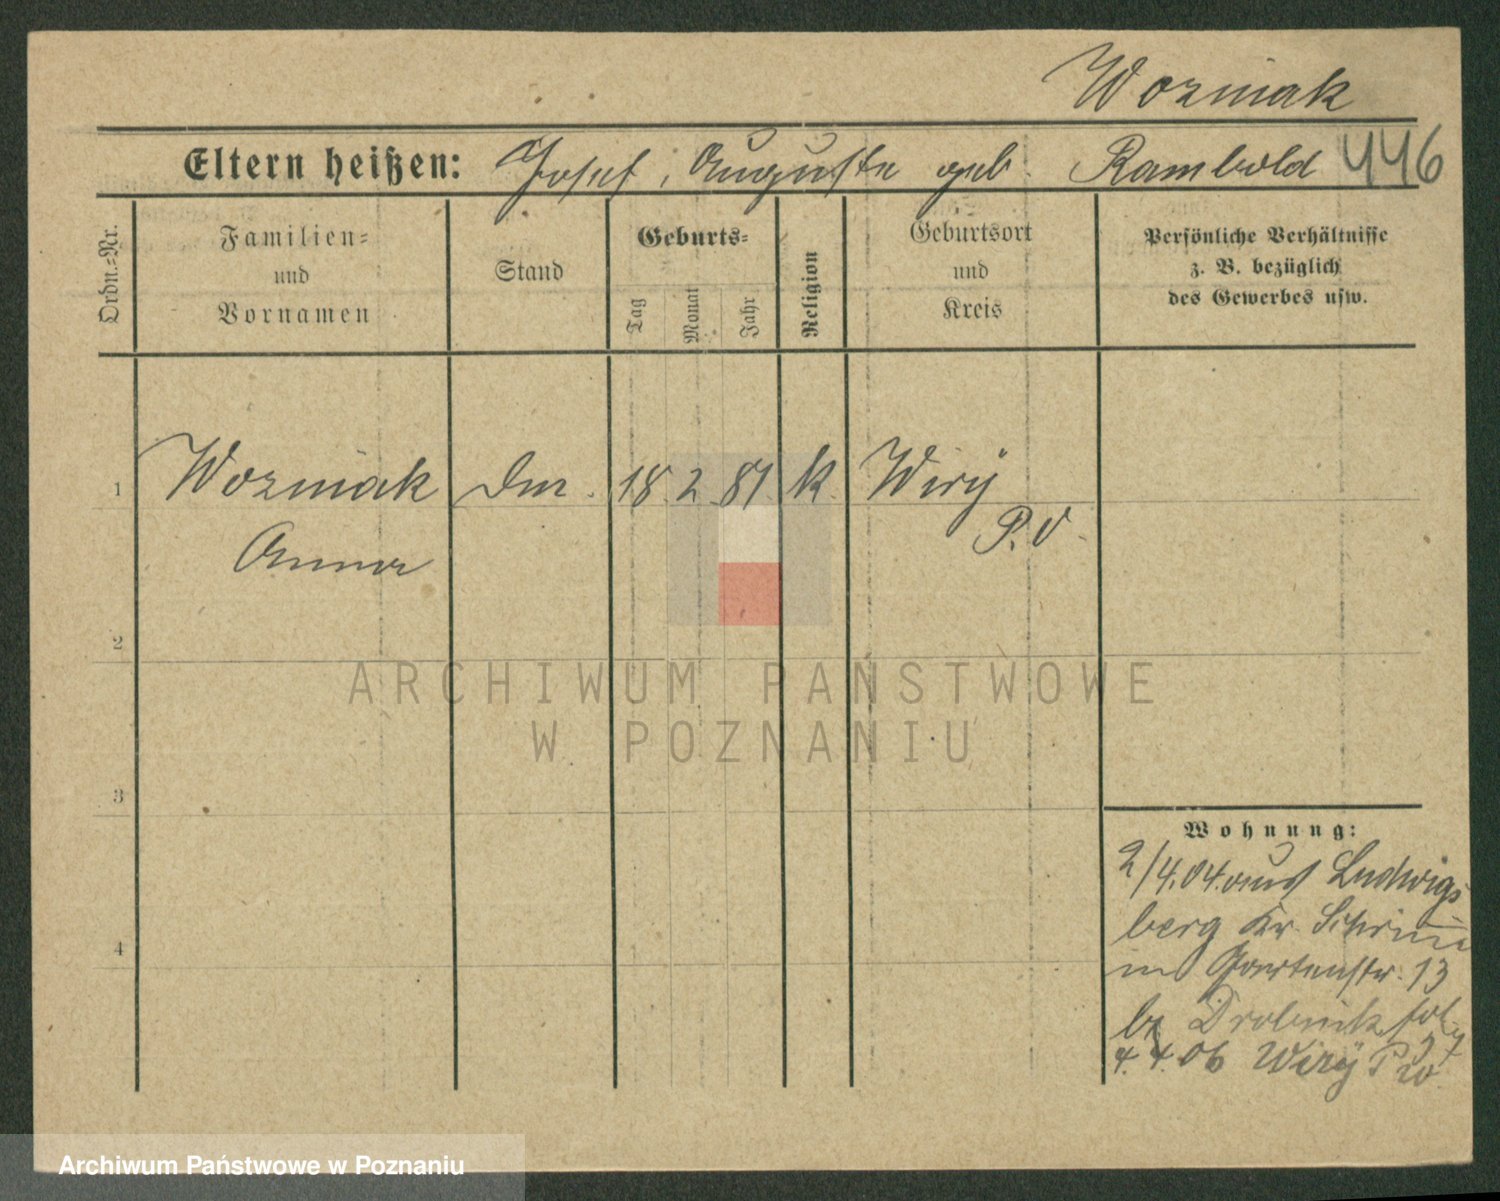 Wozniak
Eltern heißen: Josef, Auguste geb. Rambold 446
Ordn.=Nr.
Familien=
und
Vornamen
Stand
Geburts=
Tag
Monat
Jahr
Religion
Geburtsort
und
Kreis
Persönliche Verhältnisse
z. B. bezüglich
des Gewerbes usw.
1 Wozniak 18. 2. 81. k. Wiry
Anna P. O.
2
3
4
ARCHIWUM PAŃSTWOWE
W POZNANIU
Wohnung:
2/4.04. aus Ludwigs
berg Kr. Schrimm
Gartenstr. 13
b. Drobnik
4.4.06 Wiry P. W.
Archiwum Państwowe w Poznaniu